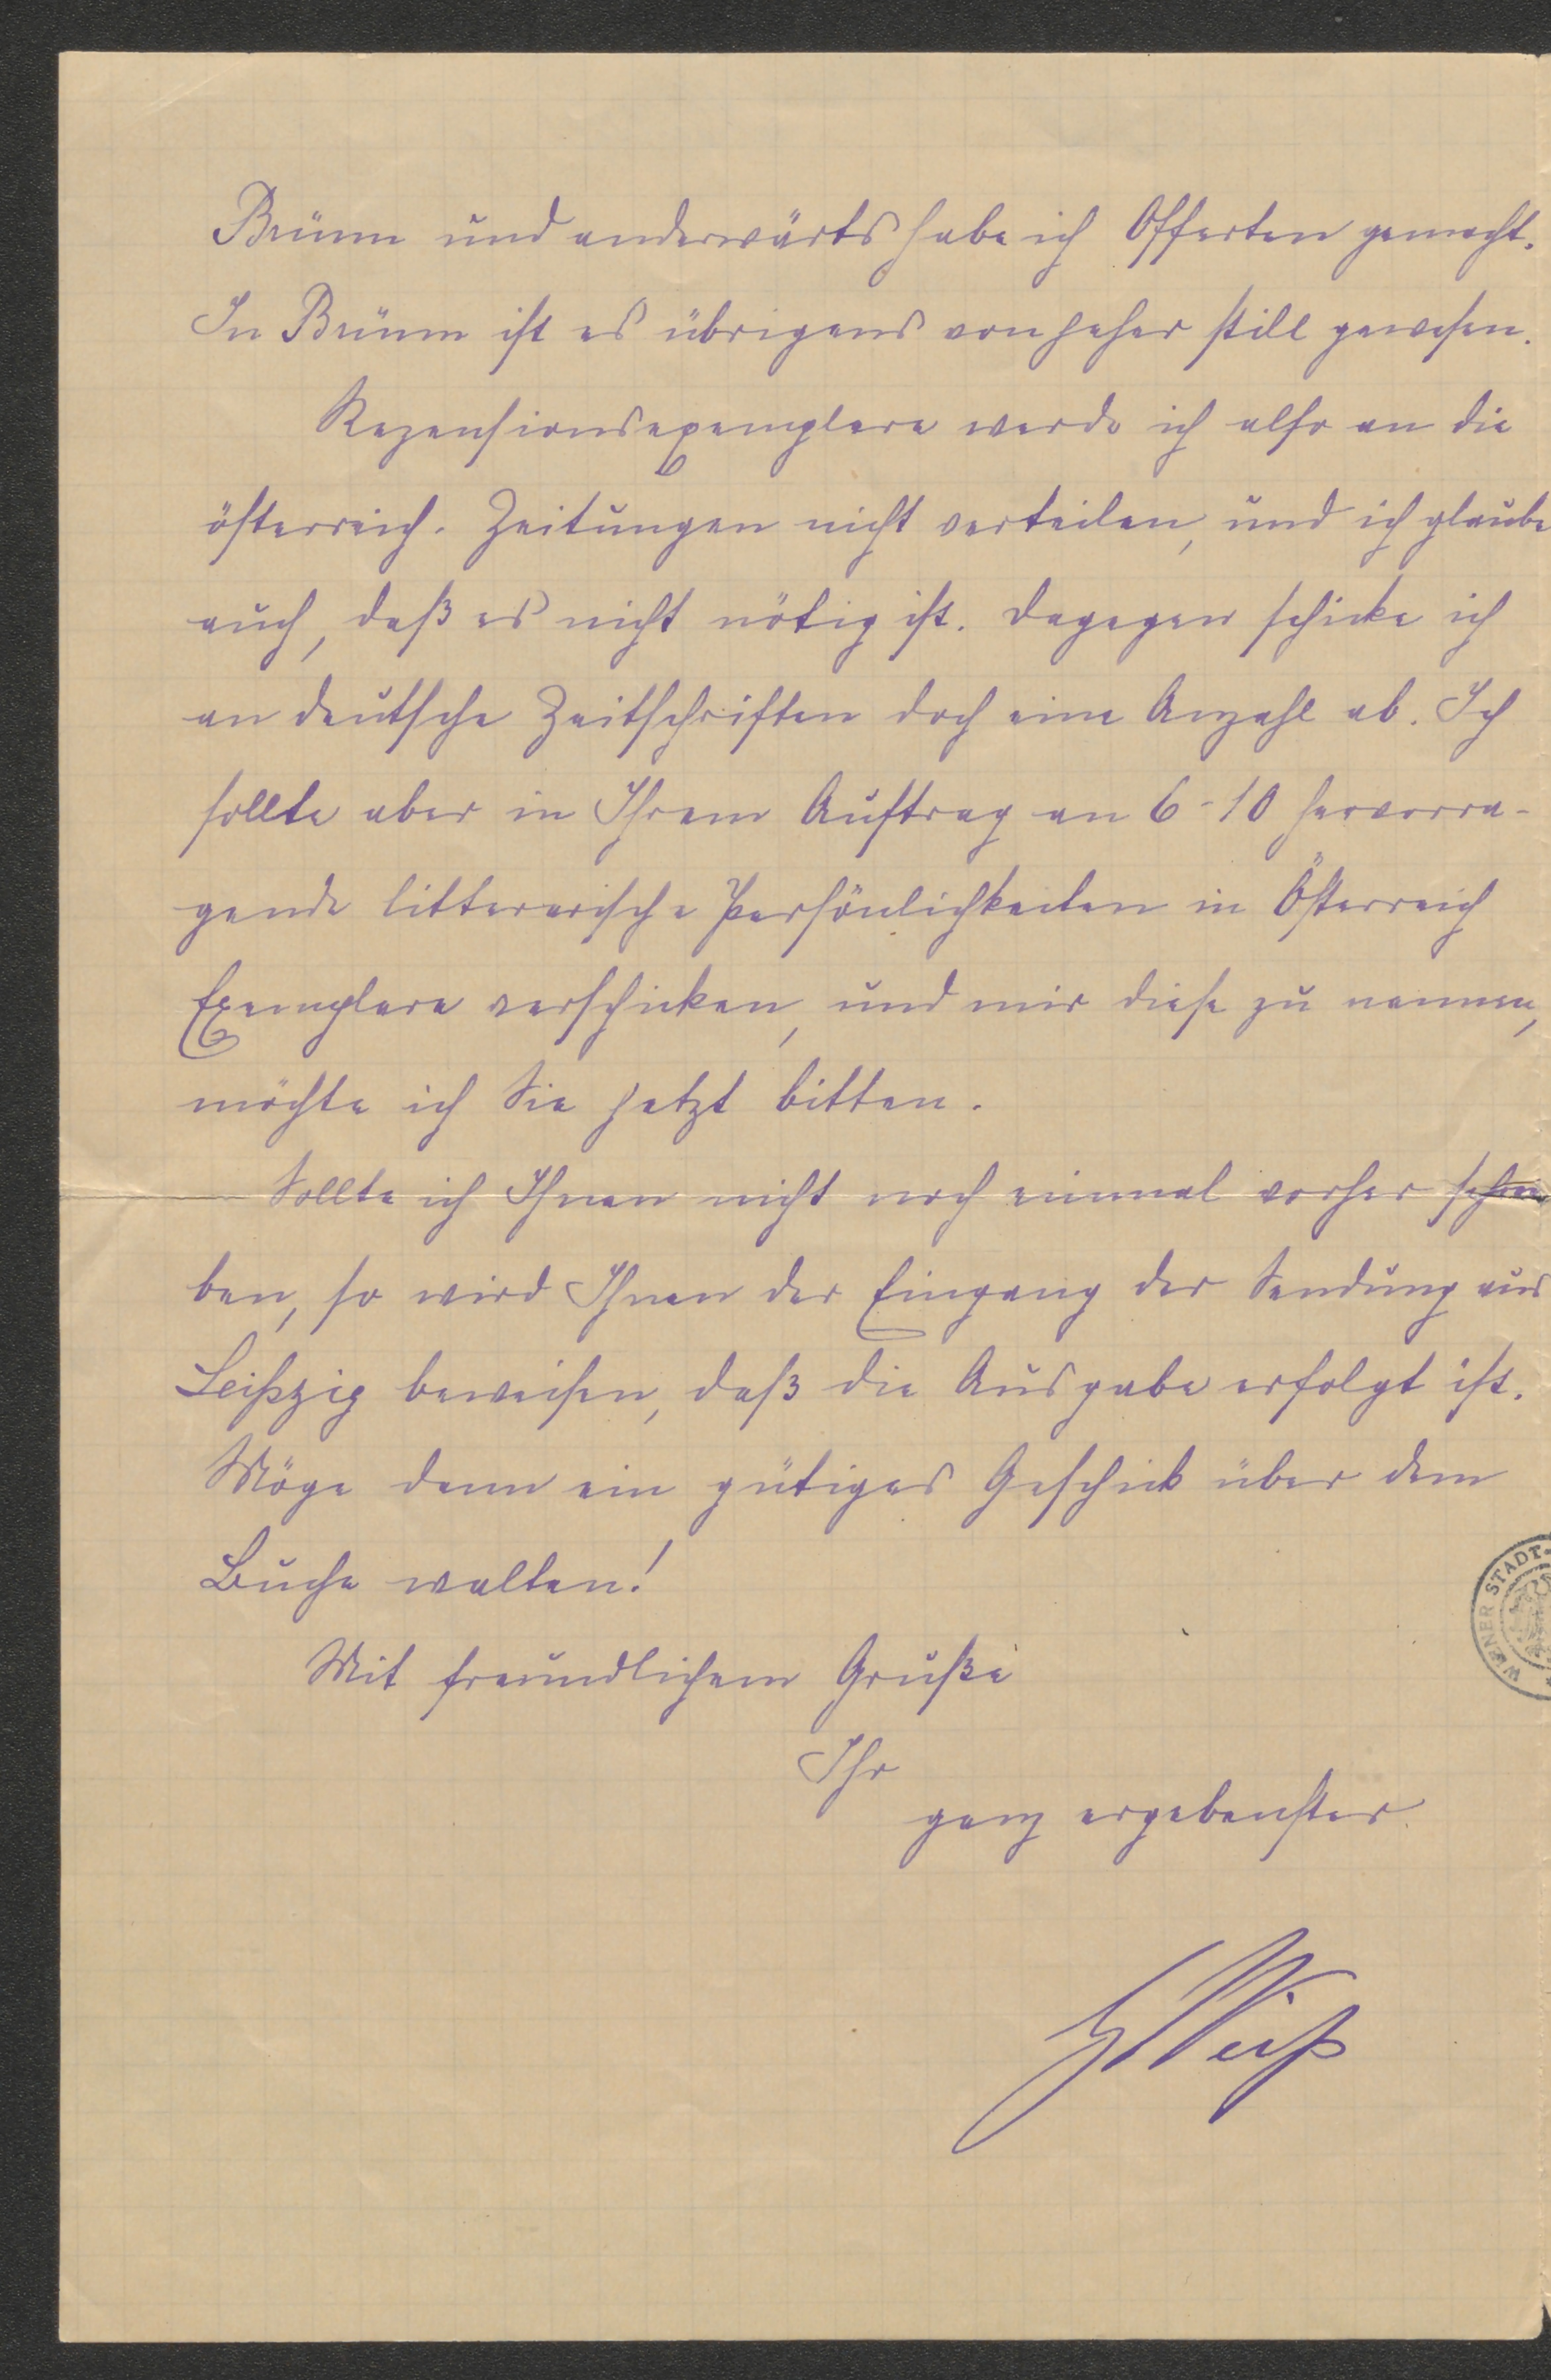 Brünn und anderwärts habe ich Offerten gemacht.
In Brünn ist es übrigens von jeher still gewesen.
Rezensionsexemplare werde ich also an die
österreich. Zeitungen nicht verteilen, und ich glaube
auch, daß es nicht nötig ist. Dagegen schicke ich
an deutsche Zeitschriften doch eine Anzahl ab. Ich
sollte aber in Ihrem Auftrag an 6-10 hervorra-
gende litterarische Persönlichkeiten in Österreich
Exemplare verschicken, und mir diese zu nennen,
möchte ich Sie jetzt bitten.
Sollte ich Ihnen nicht noch einmal vorher schrei
ben, so wird Ihnen der Eingang der Sendung aus
Leipzig beweisen, daß die Ausgabe erfolgt ist.
Möge denn ein gütiges Geschick über dem
Buche walten!
WIENER STADT-
Mit freundlichem Gruße
Ihr
ganz ergebenster